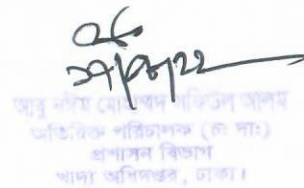 আবু নঈম মোহাম্মদ শফিউল আলম
অতিরিক্ত পরিচালক (চ: দা:)
প্রশাসন বিভাগ
খাদ্য অধিদপ্তর, ঢাকা।